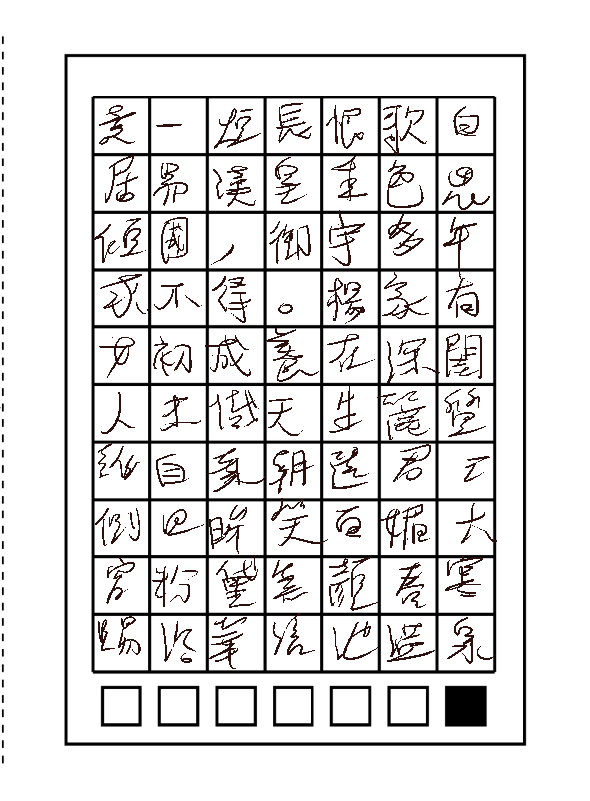 景一短長恨歌白
居易漢皇重色思
傾國,御宇多年
求不得。楊家有
女初成養在深閨
人未識天生麗質
難自棄朝選君王
側回眸笑百媚六
宮粉黛無顏春寒
賜浴華清池溫泉